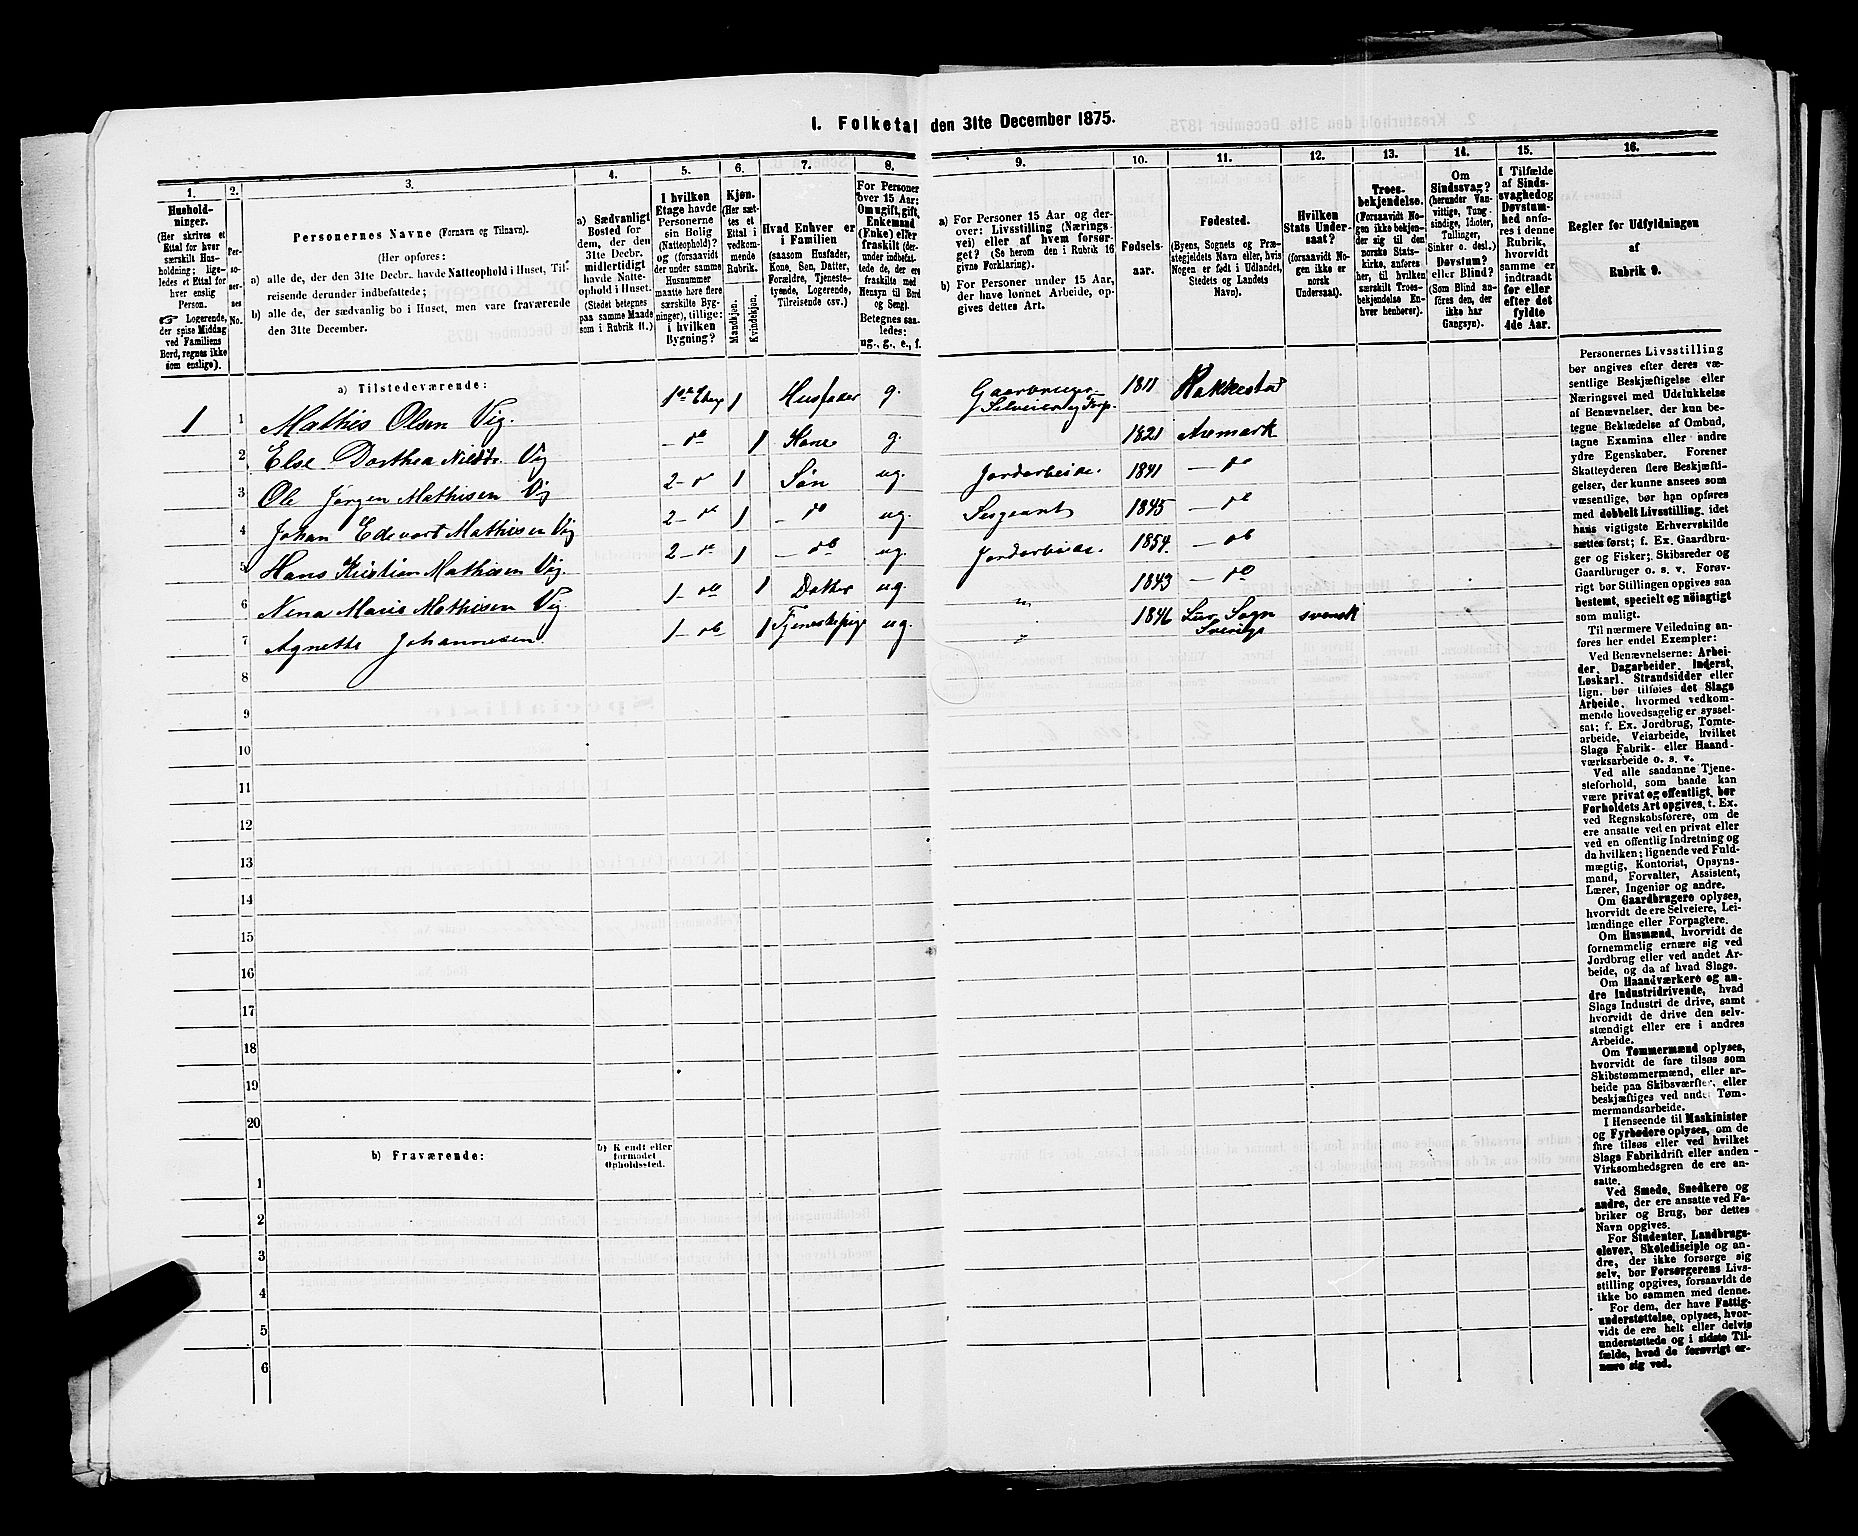 1. Folketal den 31te December 1875.
1. 2. 3. 4. 5. 6. 7. 8. 9. 10. 11. 12. 13. 14. 15. 16.
Hushold-
ninger.
(Her skrives et
Ettal for hver
særskilt Hus-
holdning; lige-
ledes et Ettal for
hver enslig
Person.
☞ Logerende,
der spise Middag
ved Familiens
Bord, regnes ikke
som enslige).
Per-
so-
ner-
nes
No.
Personernes Navne (Fornavn og Tilnavn).
(Her opføres:
a) alle de, der den 31te Decbr. havde Natteophold i Huset, Til-
reisende derunder indbefattede;
b) alle de, der sædvanlig bo i Huset, men vare fraværende
den 31te December.
a) Sædvanligt
Bosted for
dem, der den
31te Decbr.
midlertidigt
havde Natte-
ophold i Huset.
(Stedet betegnes
paa samme Maade
som i Rubrik 11.)
I hvilken
Etage havde
Personerne
sin Bolig
(Natteophold)?
og (forsaavidt
der under samme
Husnummer
maatte høre flere
særskilte Byg-
ninger), tillige:
i hvilken
Bygning?
Kjøn.
(Her sæt-
tes et
Ettal i
vedkom-
mende
Rubrik.
Mandkjøn.
Kvindekjøn.
Hvad Enhver er
i Familien
(saasom Husfader,
Kone, Søn, Datter,
Forældre, Tjeneste-
tyende, Logerende,
Tilreisende osv.)
For Personer
over 15 Aar:
Om ugift, gift,
Enkemand
(Enke) eller
fraskilt (der-
under indbefat-
tede de, der ere
fraskilte med
Hensyn til Bord
og Seng).
Betegnes saa-
ledes:
ug., g., e., f.
a) For Personer 15 Aar og der-
over: Livsstilling (Nærings-
vei) eller af hvem forsør-
get? (Se herom den i Rubrik 16
givne Forklaring).
b) For Personer under 15 Aar,
der have lønnet Arbeide, op-
gives dettes Art.
Fødsels-
aar.
Fødested.
(Byens, Sognets og Præ-
stegjeldets Navn eller, hvis
Nogen er født i Udlandet,
Stedets og Landets
Navn).
Hvilken
Stats Under-
saat?
(forsaavidt No-
gen ikke er
norsk
Undersaat).
Troes-
bekjendelse.
(Forsaavidt No-
gen ikke bekjen-
der sig til den
norske Stats-
kirke, anføres
her, til hvilken
særskilt Troes-
bekjendelse En-
hver henhører).
Om
Sindssvag?
(herunder Van-
vittige, Tung-
sindige, Idioter,
Tullinger,
Sinker o. desl.)
Døvstum?
eller Blind?
(Som Blind an-
føres den, der
ikke har
Gangsyn).
I Tilfælde
af Sinds-
svaghed og
Døvstum-
hed anfø-
res i denne
Rubrik,
hvorvidt
samme er
indtraadt
før eller
efter det
fyldte
4de Aar.
Regler for Udfyldningen
af
Rubrik 9.
a) Tilstedeværende:
1 1 Mathis Olsen Vig. 1ste Etage 1 Husfader g. Gaardbruger Selveier og Forp. 1811 Rakkestad
2 Else Dorthea Nilsdr. Vig — do 1 Kone g. 1821 Aremark
3 Ole Jørgen Mathisen Vig 2 — do 1 Søn ug. Jordarbeide. 1841 — do
4 Johan Edevart Mathisen Vig 2 — do 1 — do ug. Sergeant 1845 — do
5 Hans Kristian Mathisen Vig. 2 — do 1 — do ug. Jordarbeide. 1854 — do
6 Nina Marie Mathisen Vig 1 — do 1 Datter ug. " 1843 — do
7 Agnette Johannesen. 1 — do 1 Tjenestepige ug. " 1846 Sogn Sverige svensk
8
9
10
11
12
13
14
15
16
17
18
19
20
b) Fraværende:
b) Kjendt eller
formodet
Opholdssted.
1
2
3
4
5
6
Personernes Livsstilling
bør angives efter deres væ-
sentlige Beskjæftigelse eller
Næringsvei med Udelukkelse
af Benævnelser, der kun be-
tegne Beklædelse af Ombud,
tagne Examina eller andre
ydre Egenskaber. Forener
Skatteyderen flere Beskjæfti-
gelser, der kunne ansees som
væsentlige, bør han opføres
med dobbelt Livsstilling, idet
hans vigtigste Erhvervskilde
sættes først; f. Ex. Gaardbru-
ger og Fisker; Skibsreder og
Gaardbruger o. s. v. Forøv-
rigt bør Stillingen opgives saa
bestemt, specielt og nøiagtigt
som muligt.
Til nærmere Veiledning an-
føres her endel Exempler:
Ved Benævnelserne: Arbei-
der, Dagarbeider, Inderst,
Løskarl, Strandsidder eller
lign. bør tilføies det Slags
Arbeide, hvormed vedkom-
mende hovedsagelig er syssel-
sat; f. Ex. Jordbrug, Tomte-
arbeide, Veiarbeide, hvilket
Slags Fabrik- eller Haand-
værksarbeide o. s. v.
Ved alle saadanne Tjene-
steforhold, som baade kan
være privat og offentligt, bør
Forholdets Art opgives, t. Ex.
ved Regnskabsførere, om de
ere ansatte ved en privat eller
ved en offentlig Indretning og
da hvilken; lignende ved Fuld-
mægtig, Kontorist, Opsyns-
mand, Forvalter, Assistent,
Lærer, Ingeniør og andre.
Om Gaardbrugere oplyses,
hvorvidt de ere Selveiere, Lei-
lændinge eller Forpagtere.
Om Husmænd, hvorvidt de
fornemmelig ernære sig ved
Jordbrug eller ved andet Ar-
beide, og da af hvad Slags.
Om Haandværkere og an-
dre Industridrivende, hvad
Slags Industri de drive, samt
hvorvidt de drive den selv-
stændigt eller ere i andres
Arbeide.
Om Tømmermænd oplyses,
hvorvidt de fare tilsøs som
Skibstømmermænd, eller ar-
beide paa Skibsværfter, eller
beskjæftiges ved andet Tøm-
mermandsarbeide.
I Henseende til Maskinister
og Fyrbødere oplyses, om de
fare tilsøs eller ved hvilket
Slags Fabrikdrift eller anden
Virksomhedsgren de ere an-
satte.
Ved Smede, Snedkere og
andre, der ere ansatte ved Fa-
briker og Brug, bør dettes
Navn opgives.
For Studenter, Landbrugs-
elever, Skoledisciple og an-
dre, der ikke forsørge sig
selv, bør Forsørgerens Livs-
stilling opgives, forsaavidt de
ikke bo sammen med denne.
For dem, der have Fattig-
understøttelse, oplyses, hvor-
vidt de ere helt eller delvis
understøttede og i sidste Til-
fælde, hvad de forøvrigt er-
nære sig ved.